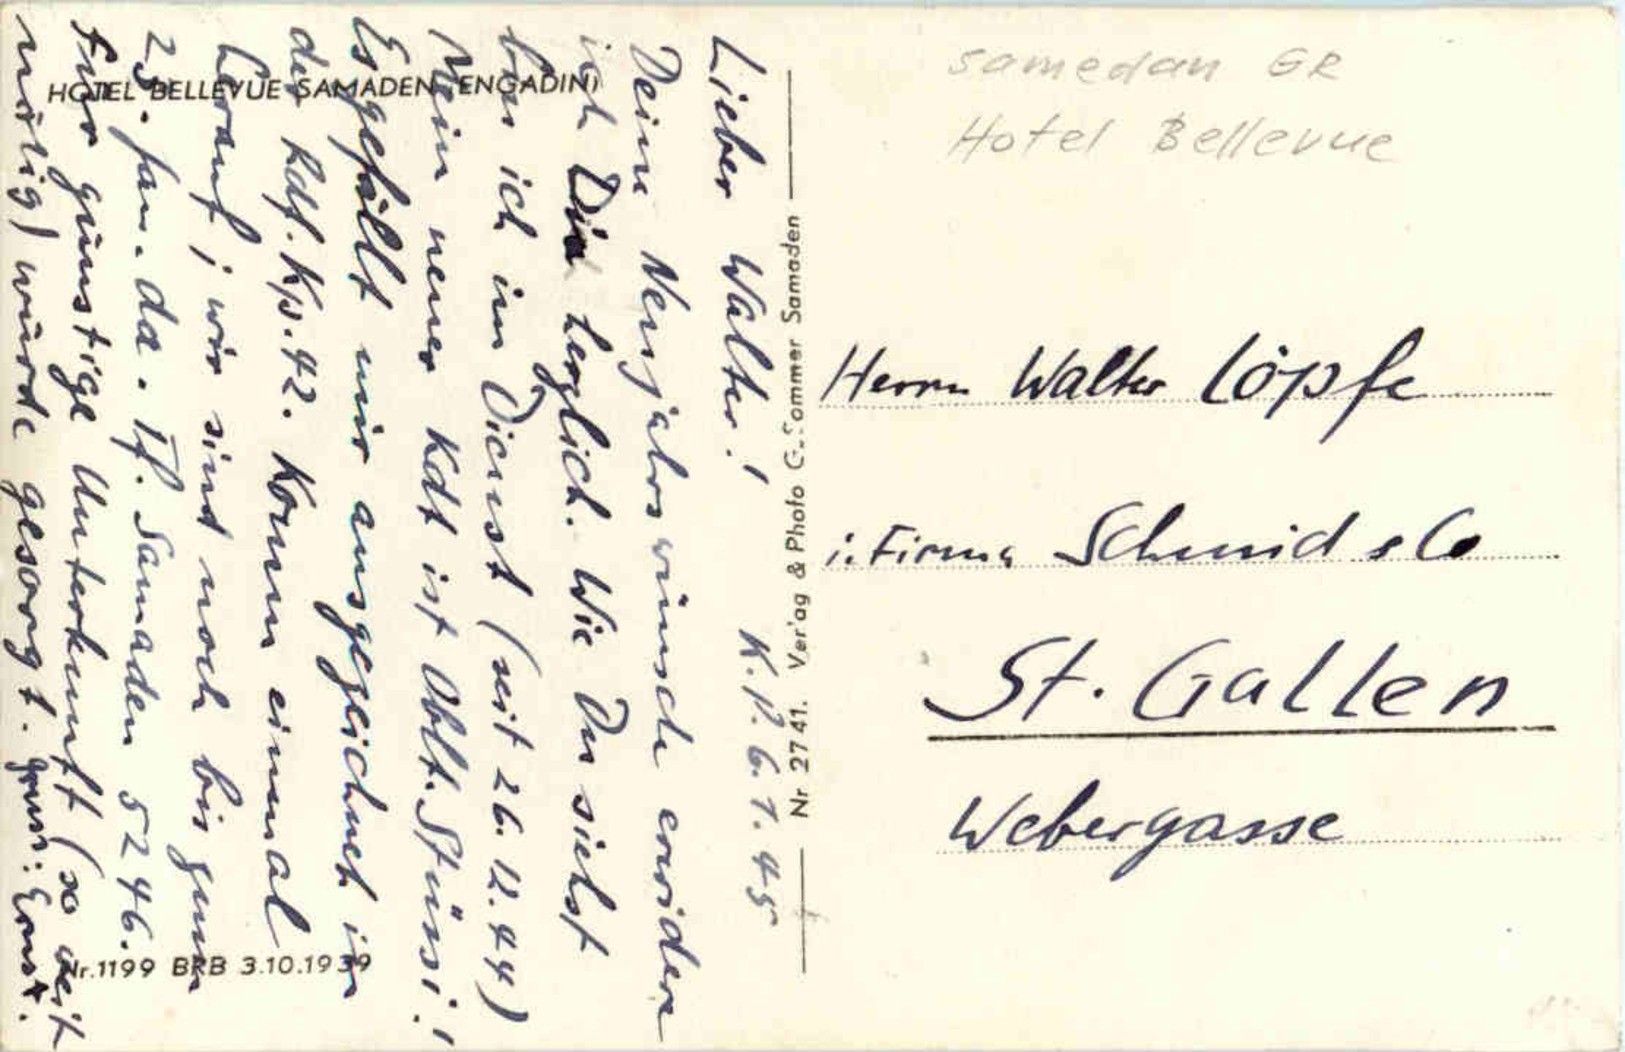 HOTEL BELLEVUE SAMADEN (ENGADIN)
K. P. 6. 1. 45
Lieber Walter!
Deine Neujahrswünsche erwidere
ich Dir herzlich. Wie Du siehst
bin ich im Dienst (seit 26.12.44)
Mein neuer Kdt ist Oblt. Stüssi!
Es gefällt mir ausgezeichnet in
der Rdf. Kp. 42. Komm einmal
herauf; wir sind noch bis zum
25. Jan. da. Tf. Samaden 5246.
Für günstige Unterkunft (so weit
nötig) würde gesorgt. Gruss: Ernst.
Nr. 1199 BRB 3.10.1939
Nr 2741. Verlag & Photo G. Sommer Samaden
samedan GR
Hotel Bellevue
Herrn Walter Löpfe
i. Firma Schmid & Co
St. Gallen
Webergasse